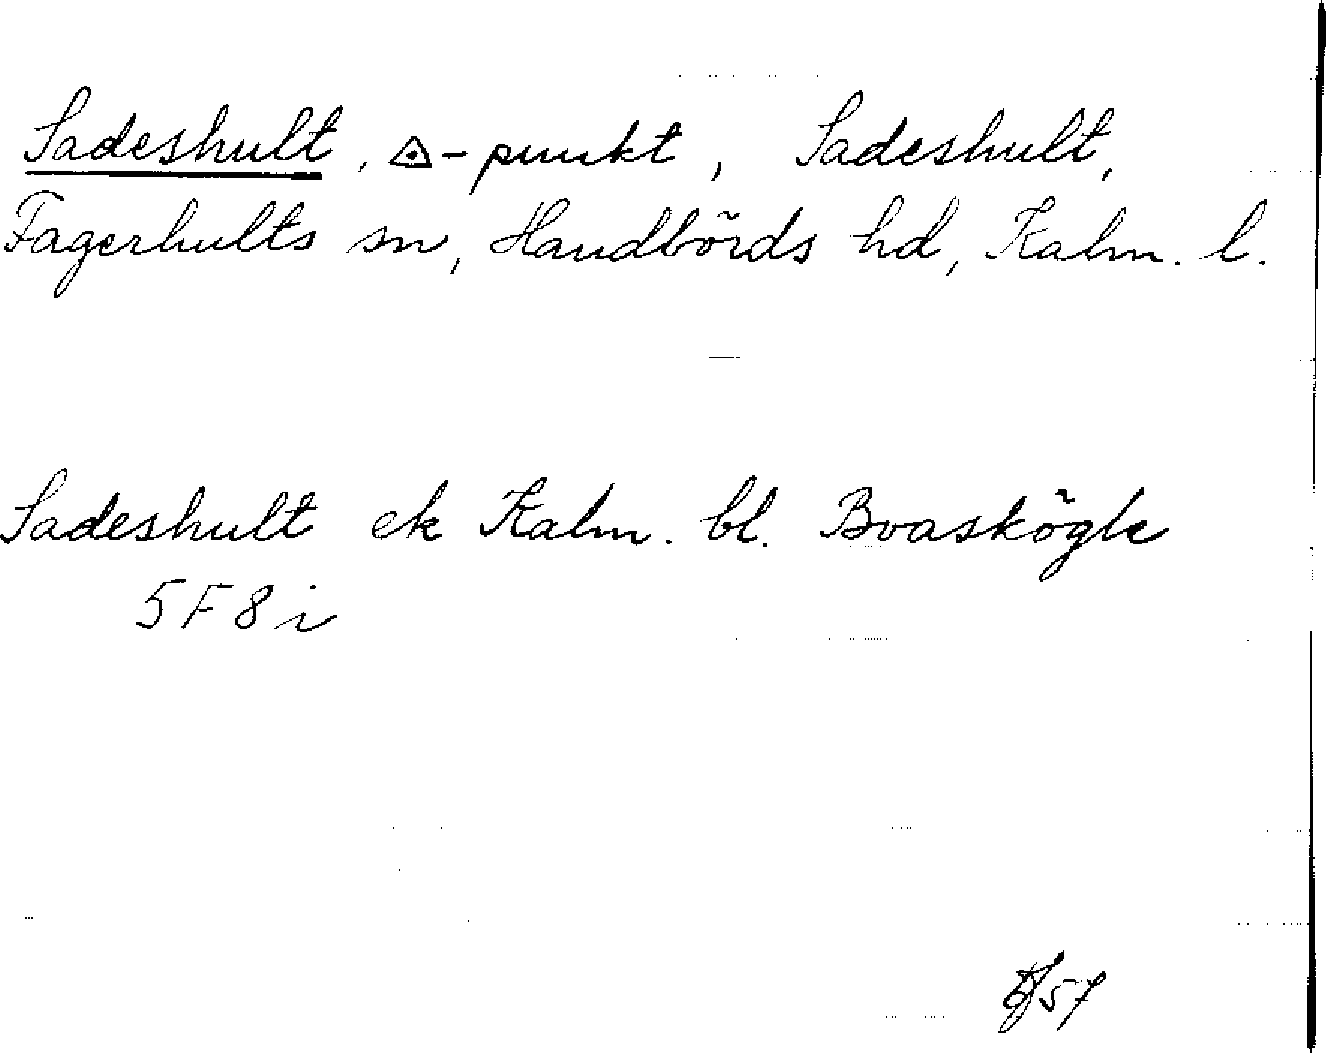 Sadeshult, △-punkt, Sadeshult,
Fagerhults sn, Handbörds hd, Kalm. l.
Sadeshult ek Kalm. bl. Boaskögle
5F8i
57